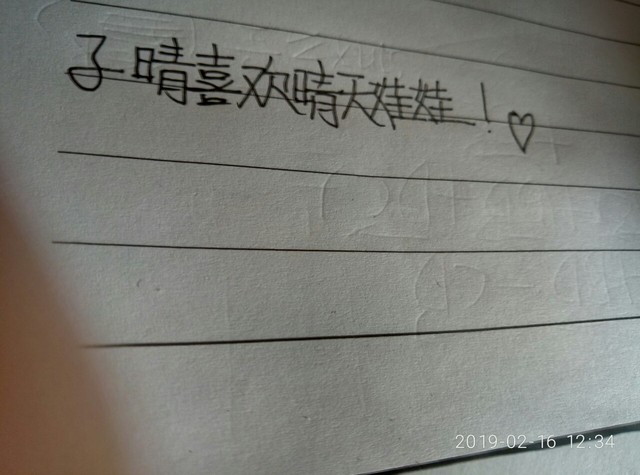 子晴喜欢晴天娃娃！♡
2019-02-16 12:34